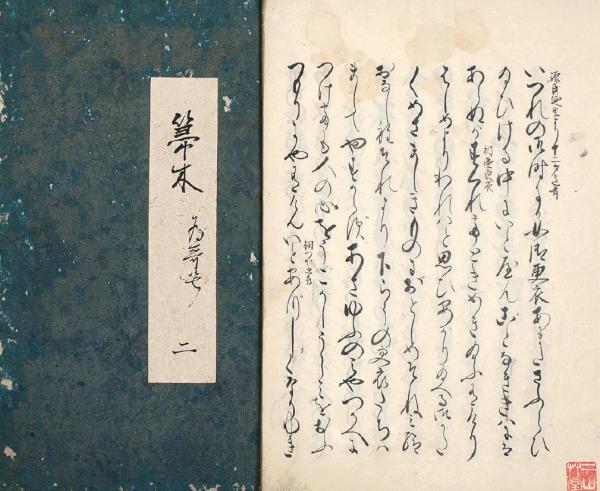 箒木
二
いつれの御時にか女御更衣あまたさふらひ
給ひける中にいとやんことなききはには
あらぬかすくれてときめき給ふ有けり
はしめよりわれはと思ひあかり給へる御かた
〳〵めさましきものにおとしめそねみ給
おなし程それより下らうの更衣たちは
ましてやすからすあさゆふのみやつかへに
つけても人の心をうこかしうらみをおふ
つもりにやありけんいとあつしくなりゆき
桐つほ更衣